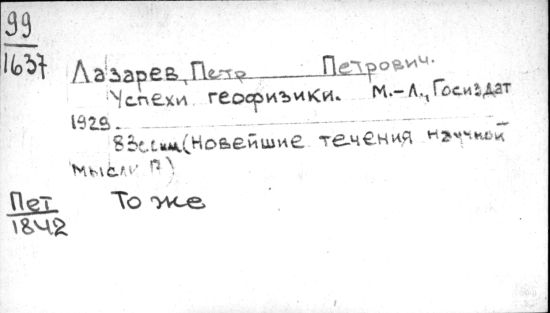 99
1637
Лазарев, Петр Петрович.
Успехи геофизики. М.-Л., Госиздат
1929.
83 (Новейшие течения научной
мысли
Пет
1842
То же